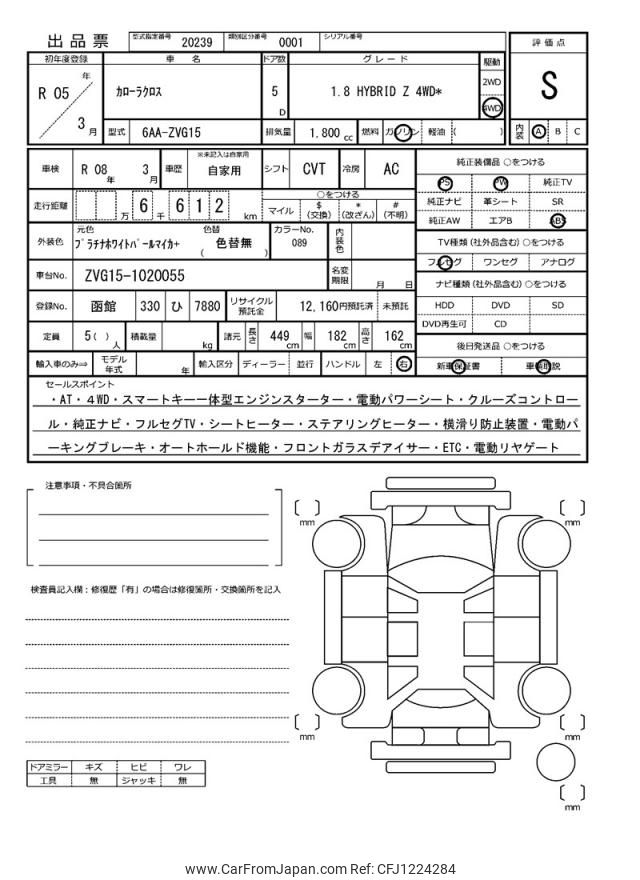 出品票 型式指定番号 20239 類別区分番号 0001 シリアル番号
評価点
初年度登録 車名 ドア数 グレード 駆動
R 05 年 3 月 カローラクロス 5 D 1.8 HYBRID Z 4WD* 2WD 4WD
S
型式 6AA-ZVG15 排気量 1,800 cc 燃料 ガソリン 軽油 ( ) 内装 A B C
車検 R 08 年 3 月 車歴 ※未記入は自家用 自家用 シフト CVT 冷房 AC
純正装備品 ○をつける
PS PW 純正TV
純正ナビ 革シート SR
純正AW エアB ABS
走行距離 万 6 千 6 1 2 km
○をつける
マイル $(交換) *(改ざん) #(不明)
外装色 元色 プラチナホワイトパールマイカ+ 色替 ( 色替無 ) カラーNo. 089 内装色
TV種類 (社外品含む) ○をつける
フルセグ ワンセグ アナログ
車台No. ZVG15-1020055 名変期限 月 日
ナビ種類 (社外品含む) ○をつける
HDD DVD SD
DVD再生可 CD
登録No. 函館 330 ひ 7880 リサイクル預託金 12,160円預託済 未預託
定員 5( ) 人 積載量 kg 諸元 長さ 449 cm 幅 182 cm 高さ 162 cm
後日発送品 ○をつける
新車保証書 車輌取説
輸入車のみ⇒ モデル年式 年 輸入区分 ディーラー 並行 ハンドル 左 右
セールスポイント
・AT・4WD・スマートキー一体型エンジンスターター・電動パワーシート・クルーズコントロー
ル・純正ナビ・フルセグTV・シートヒーター・ステアリングヒーター・横滑り防止装置・電動パ
ーキングブレーキ・オートホールド機能・フロントガラスデアイサー・ETC・電動リヤゲート
注意事項・不具合箇所
mm
mm
検査員記入欄：修復歴「有」の場合は修復箇所・交換箇所を記入
mm
mm
ドアミラー キズ ヒビ ワレ
工具 無 ジャッキ 無
mm
www.CarFromJapan.com Ref: CFJ1224284